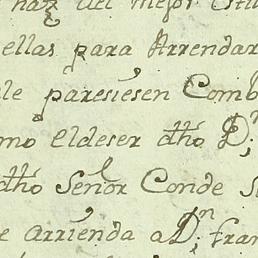 haz del mejor esti
ellas para Arrendar
le paresiesen Comb
mo eldeser dho Dn
dho Señor Conde s
e arrienda a Dn. fran